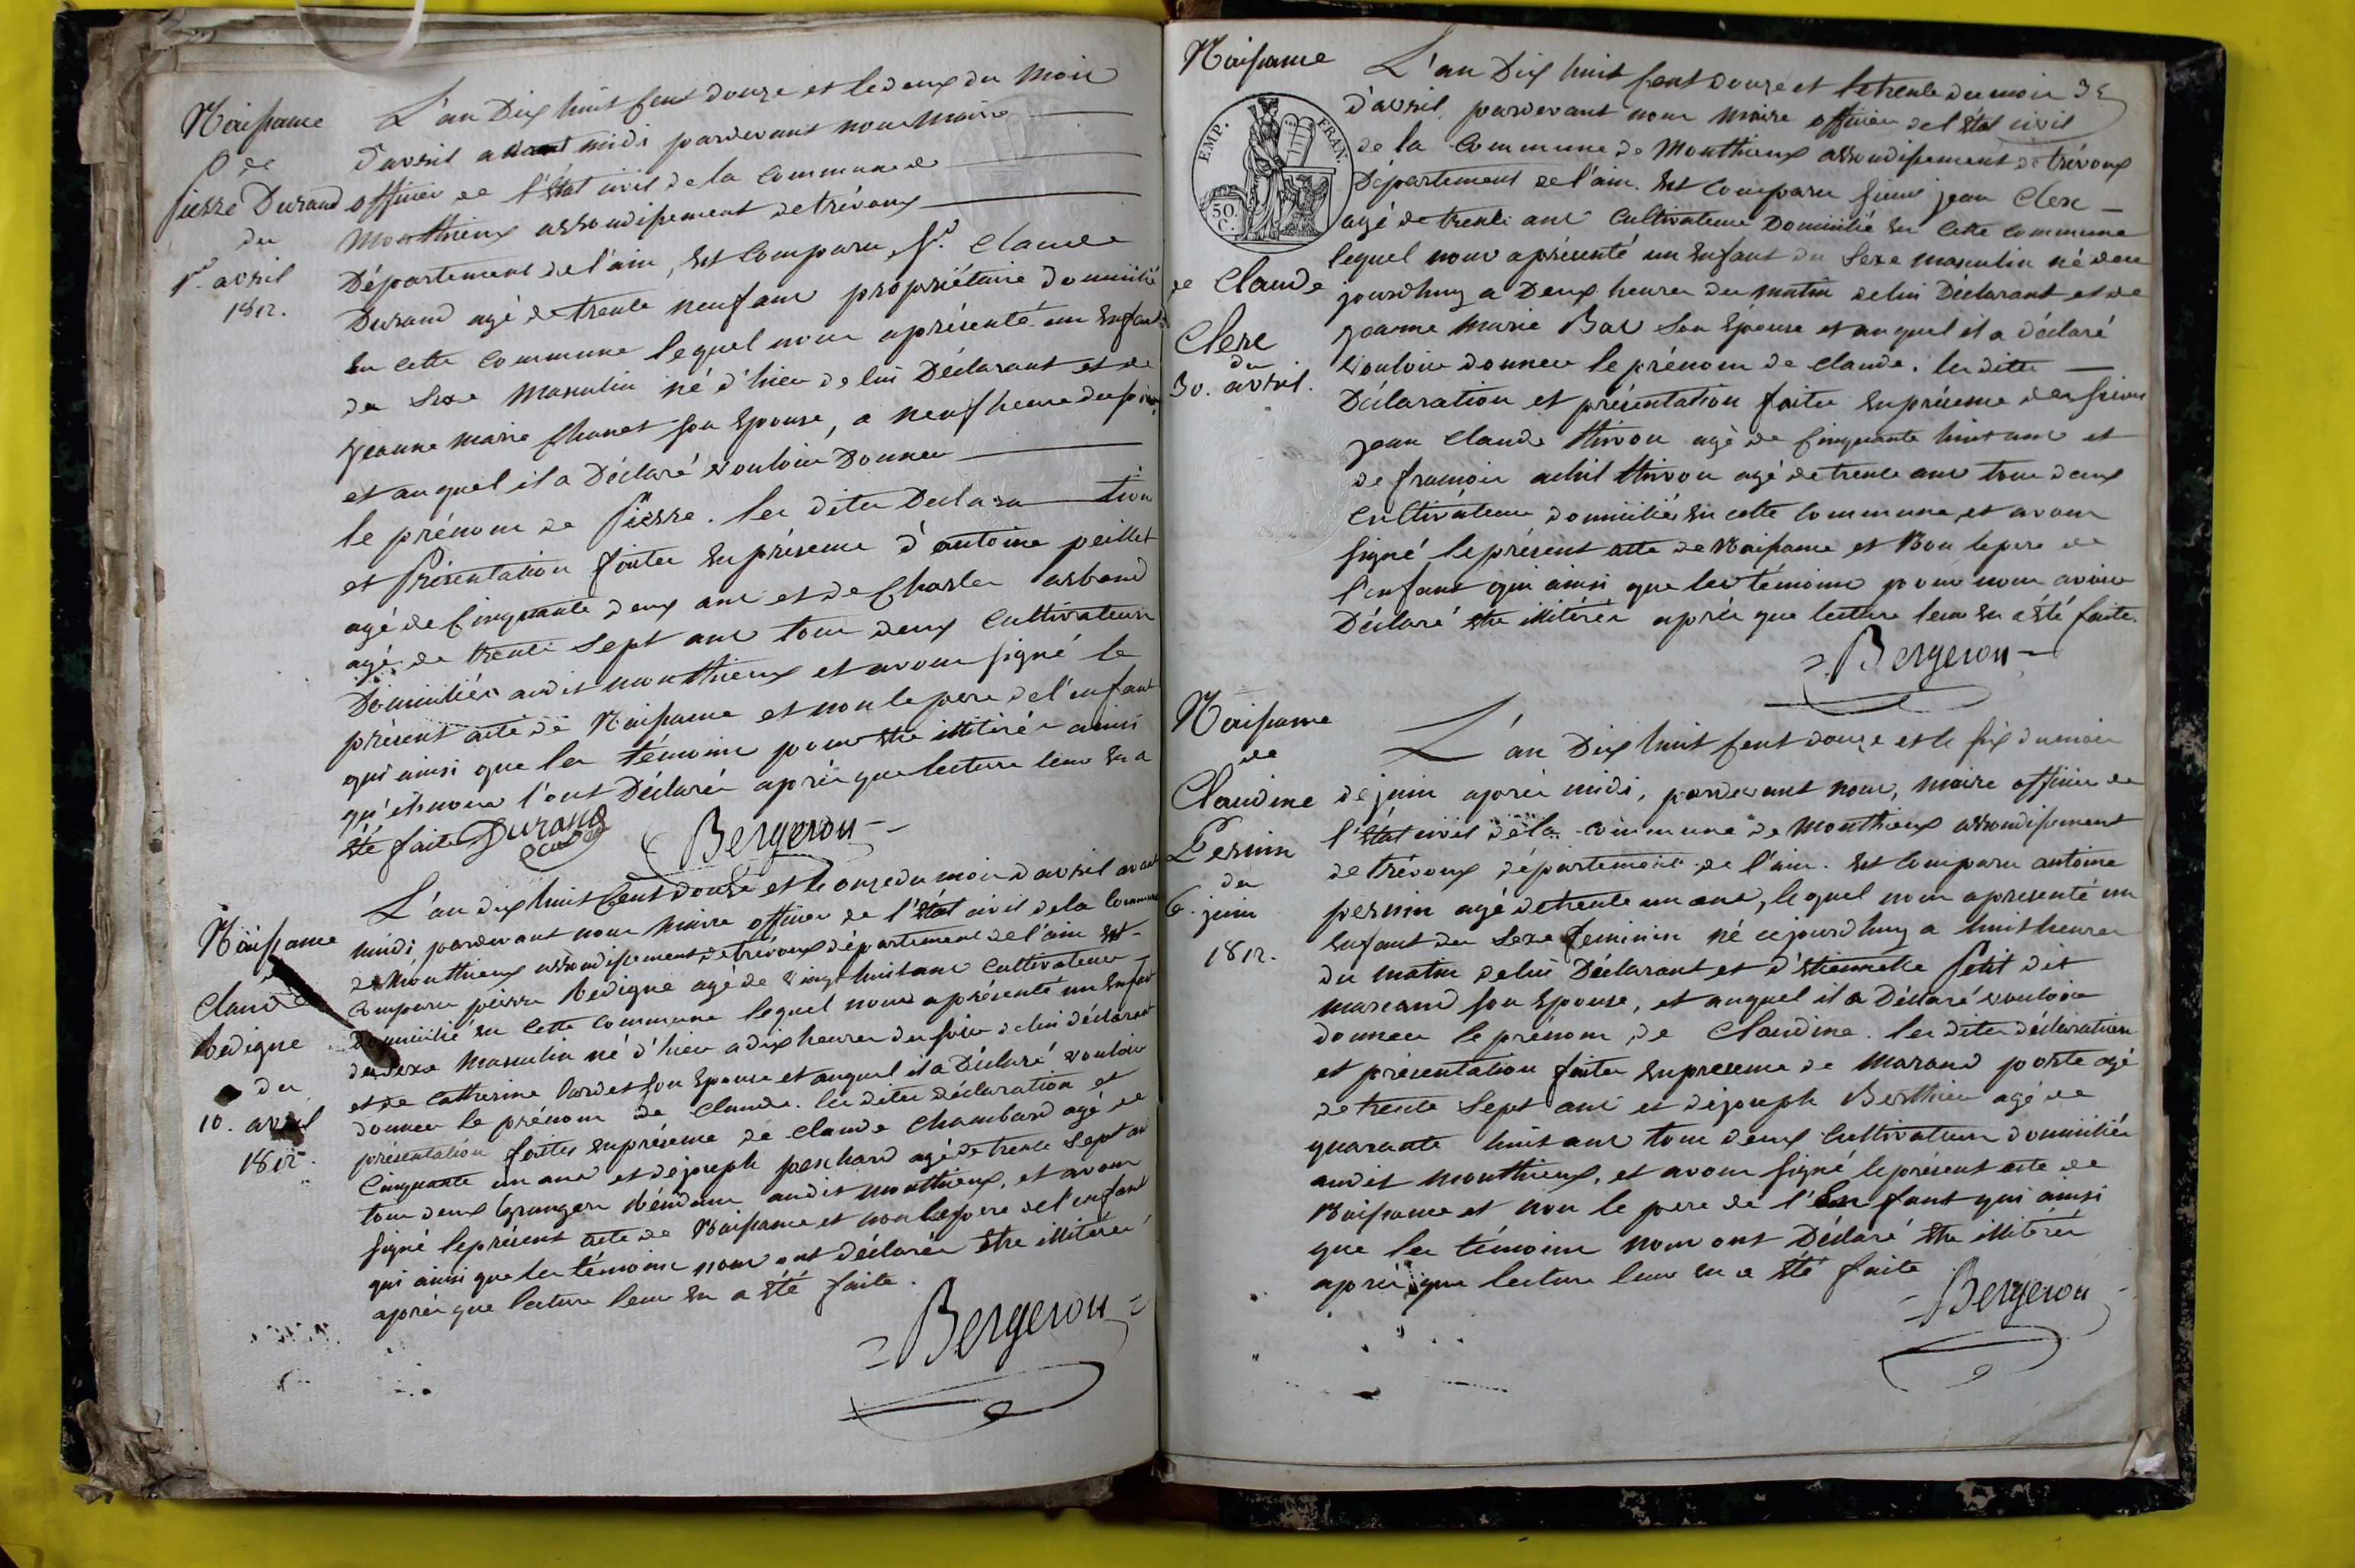 Naissance
de
pierre Durand
du
1er. avril
1812.
L'an Dix huit Cent douze et le deux du mois
d'avril avant midi pardevant nous maire
officier de l'état civil de la commune de
monthieux arrondissement de trévoux
Département de l'ain, est comparu, Sr. Claude
Durand agé de trente neuf ans propriétaire domicilié
en cette commune lequel nous a présenté un enfant
du Sexe masculin né d'hier de lui Déclarant et de
jeanne marie Chanet son Epouse, a neuf heure du soir
et auquel il a Déclaré vouloir Donner
le prénom de Pierre. les dites Declaration
et Présentation faites en présence d'antoine peillet
agé de Cinquante deux ans et de Charles arband
agé de trente Sept ans tous deux Cultivateurs
Domiciliés audit monthieux et avons signé le
présent acte de Naissance et non le pere de l'enfant
qui ainsi que les témoins pour etre illitérés ainsi
qu'ils nous l'ont Déclarés après que lecture leur en a
été faite Durand Bergeron
Naissance
Claude
Bedigne
du
10. avril
1812.
L'an dix huit Cent douze et le onze du mois d'avril avant
midi, pardevant nous maire officier de l'état civil de la Commune
de monthieux arrondissement de trévoux département de l'ain est
comparu pierre Bedigne agé de vingt huit ans Cultivateur
domicilié en cette commune lequel nous a présenté un enfant
du sexe masculin né d'hier a dix heures du soir de lui déclarant
et de Catherine lardet son Epouse et auquel il a Déclaré vouloir
donner le prénom de Claude. les dites déclaration et
présentation faites en présence de Claude Chambard agé de
Cinquante un ans et de joseph penchard agé de trente Sept ans
tous deux Grangers Résidans audit monthieux, et avons
signé le présent acte de Naissance et non le pere de l'enfant
qui ainsi que les témoins nous ont déclarés etre illitérés
après que lecture leur en a été faite.
Bergeron
Naissance
EMP. FRAN.
50. C.
de Claude
Clerc
du
30. avril.
L'an Dix huit Cent douze et le trente du mois
d'avril, pardevant nous maire officier de l'état civil
de la Commune de Monthieux arrondissement de trévoux
Département de l'ain. Est comparu sieur jean Clerc
agé de trente ans Cultivateur Domicilié en cette commune
lequel nous a présenté un enfant du Sexe masculin né ce
jourdhuy a Deux heures du matin de lui Déclarant et de
jeanne Marie Bal son Epouse et auquel il a déclaré
vouloir donner le prénom de Claude. les dittes
Déclaration et présentation faites en présence des sieurs
jean Claude thivon agé de Cinquante huit ans et
de françois thivon agé de trente ans tous deux
Cultivateurs domiciliés en cette commune, et avons
signé le présent acte de Naissance et Non le pere de
l'enfant qui ainsi que les témoins pour nous avoir
Déclaré etre illitérés après que lecture leur en a été faite.
Bergeron
Naissance
de
Claudine
Pernin
du
6. juin
1812.
L'an Dix huit Cent douze et le six du mois
de juin après midi, pardevant nous, maire officier de
l'état civil de la commune de Monthieux arrondissement
de trévoux département de l'ain. Est Comparu antoine
pernin agé de trente un ans, lequel nous a présenté un
Enfant du Sexe feminin né cejourdhuy a huit heures
du matin de lui Déclarant et d'étiennette Petit dit
marcand son Epouse, et auquel il a Déclaré vouloir
donner le prénom de Claudine. les dites déclaration
et présentation faites en presence de Marand porte agé
de trente Sept ans et de joseph Berthier agé de
quarante huit ans tous deux Cultivateurs domiciliés
audit monthieux, et avons signé le présent acte de
Naissance et non le pere de l'Enfant qui ainsi
que les témoins nous ont Déclaré etre illitérés
après que lecture leur en a été faite
Bergeron